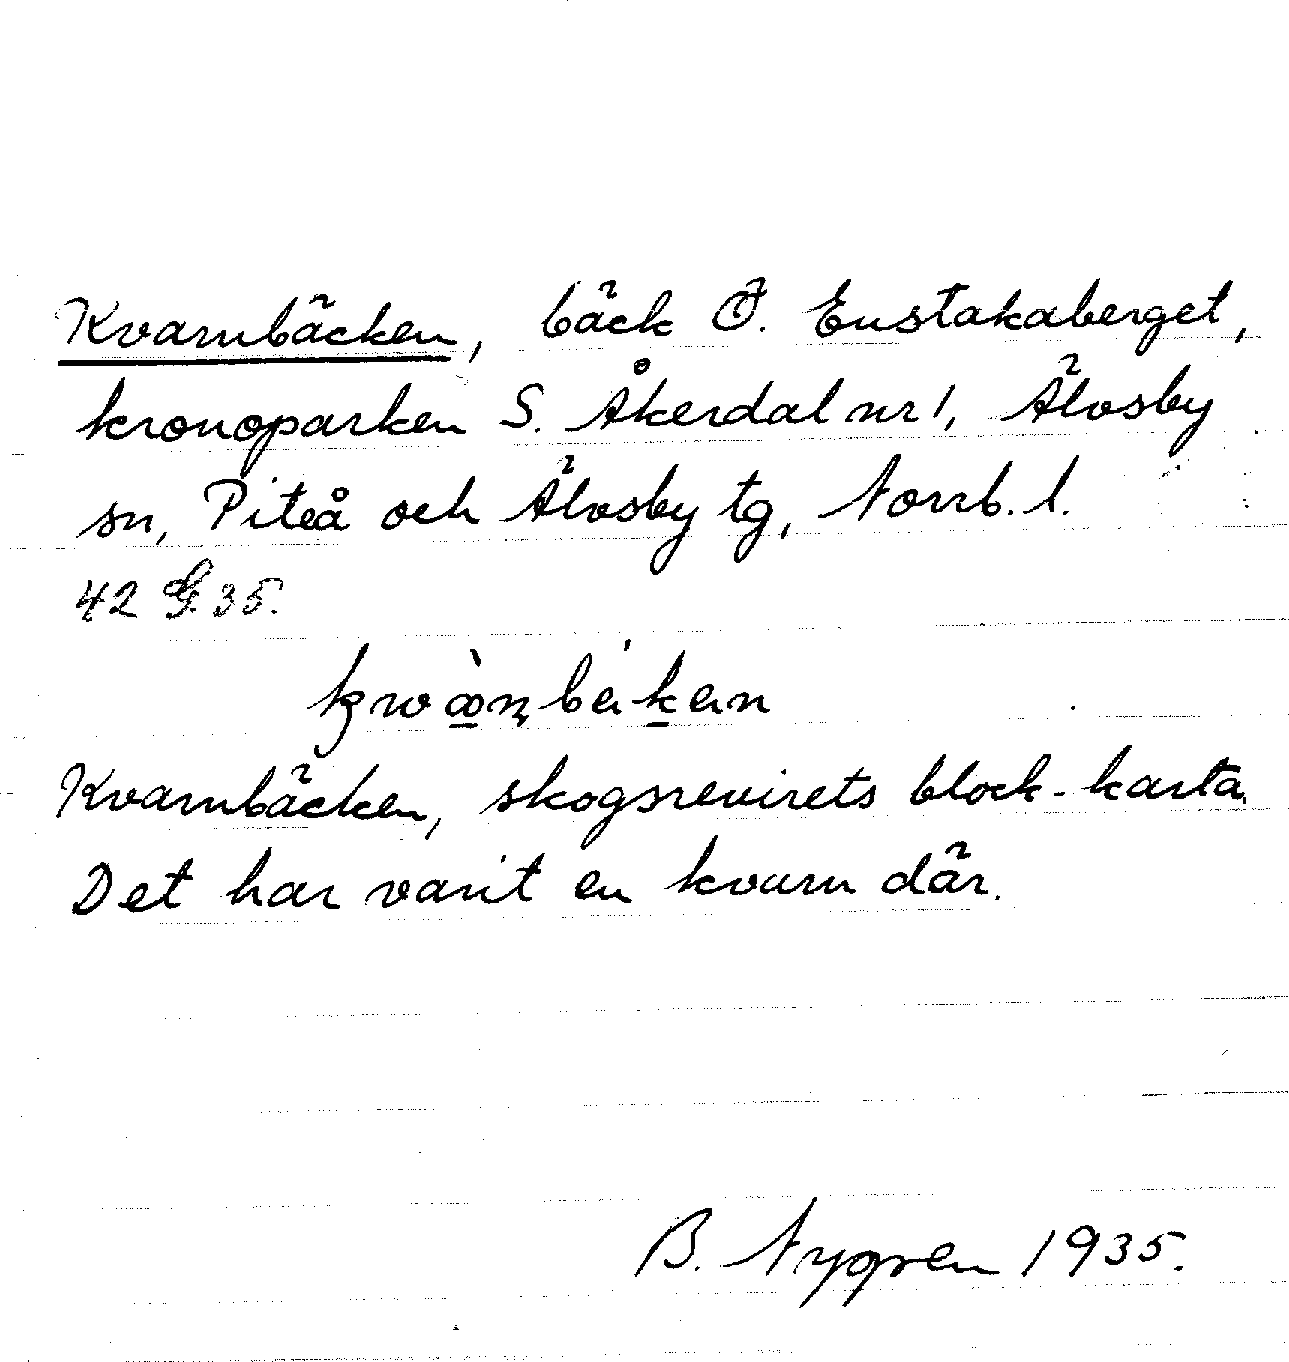 Kvarnbäcken, bäck Ö. Enstakaberget,
kronoparken S. Åkerdal nr 1, Älvsby
sn, Piteå och Älvsby tg, Norrb. l.
42 G. 35.
Kvarnbäcken, skogsrevirets block-karta.
Det har varit en kvarn där.
B. Nygren 1935.